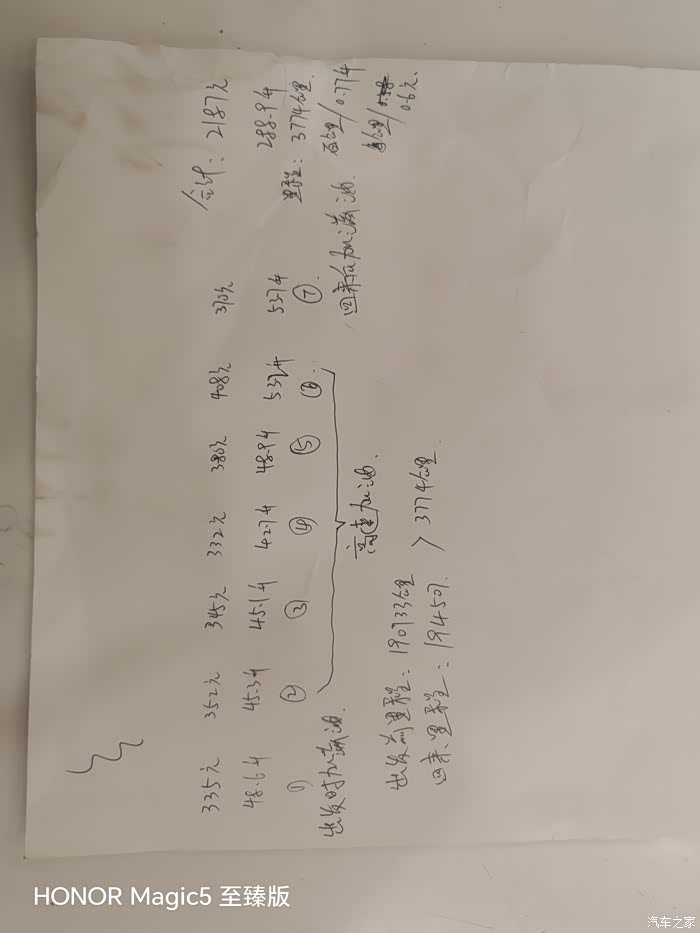 335元 352元 345元 332元 380元 408元 370元 合计：2187元
48.6升 45.3升 45.1升 42.7升 48.9升 53.2升 53.7升 288.9升
① ② ③ ④ ⑤ ⑥ ⑦ 里程：3774公里
出发时加满油. 高速加油. 回来后加满油. 百公里/0.77升
每公里/0.6元.
出发前里程：190733公里
回来里程：194507. >3774公里
HONOR Magic5 至臻版
汽车之家